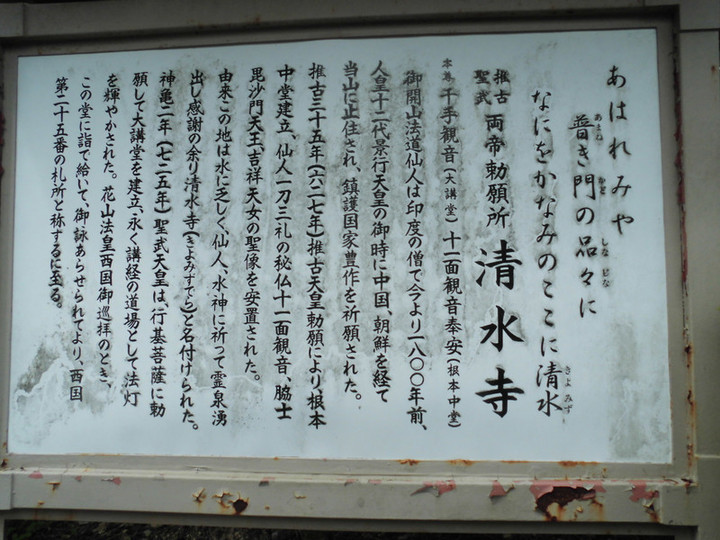 あはれみや
普き門の品々に
あまね
かど
しな
じな
なにをかなみのここに清水
きよみず
推古
聖武
両帝勅願所
清水寺
本尊
千手観音(大講堂)十一面観音奉安(根本中堂)
御開山法道仙人は印度の僧で今より一八〇〇年前、
人皇十二代景行天皇の御時に中国、朝鮮を経て
当山に止住され、鎮護国家豊作を祈願された。
推古三十五年(六二七年)推古天皇勅願により根本
中堂建立、仙人一刀三礼の秘仏十一面観音、脇士
毘沙門天王、吉祥天女の聖像を安置された。
由来この地は水に乏しく、仙人、水神に祈って霊泉湧
出し感謝の余り清水寺(きよみずでら)と名付けられた。
神亀二年(七二五年)聖武天皇は、行基菩薩に勅
願して大講堂を建立、永く講経の道場として法灯
を輝やかされた。花山法皇西国御巡拝のとき、
この堂に詣で給いて、御詠あらせられてより、西国
第二十五番の札所と称するに至る。